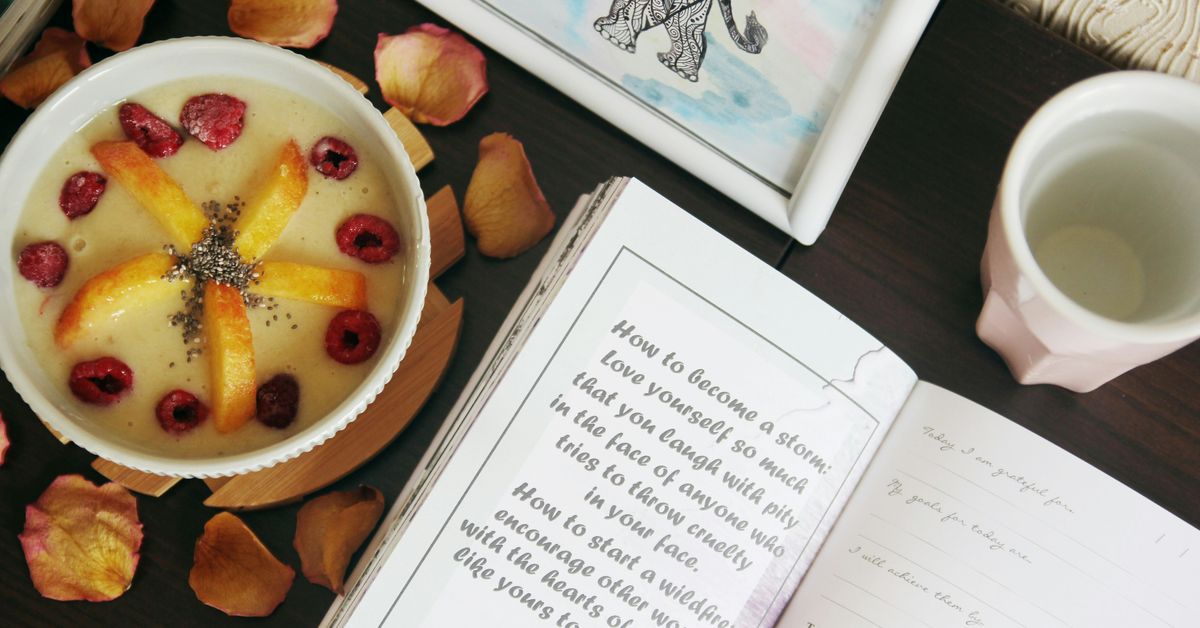 How to become a storm:
Love yourself so much
that you laugh with pity
in the face of anyone who
tries to throw cruelty
in your face.
How to start a wildfire
encourage other
with the hearts of
like yours to
Today I am grateful for..
My goals for today are..
I will achieve them by